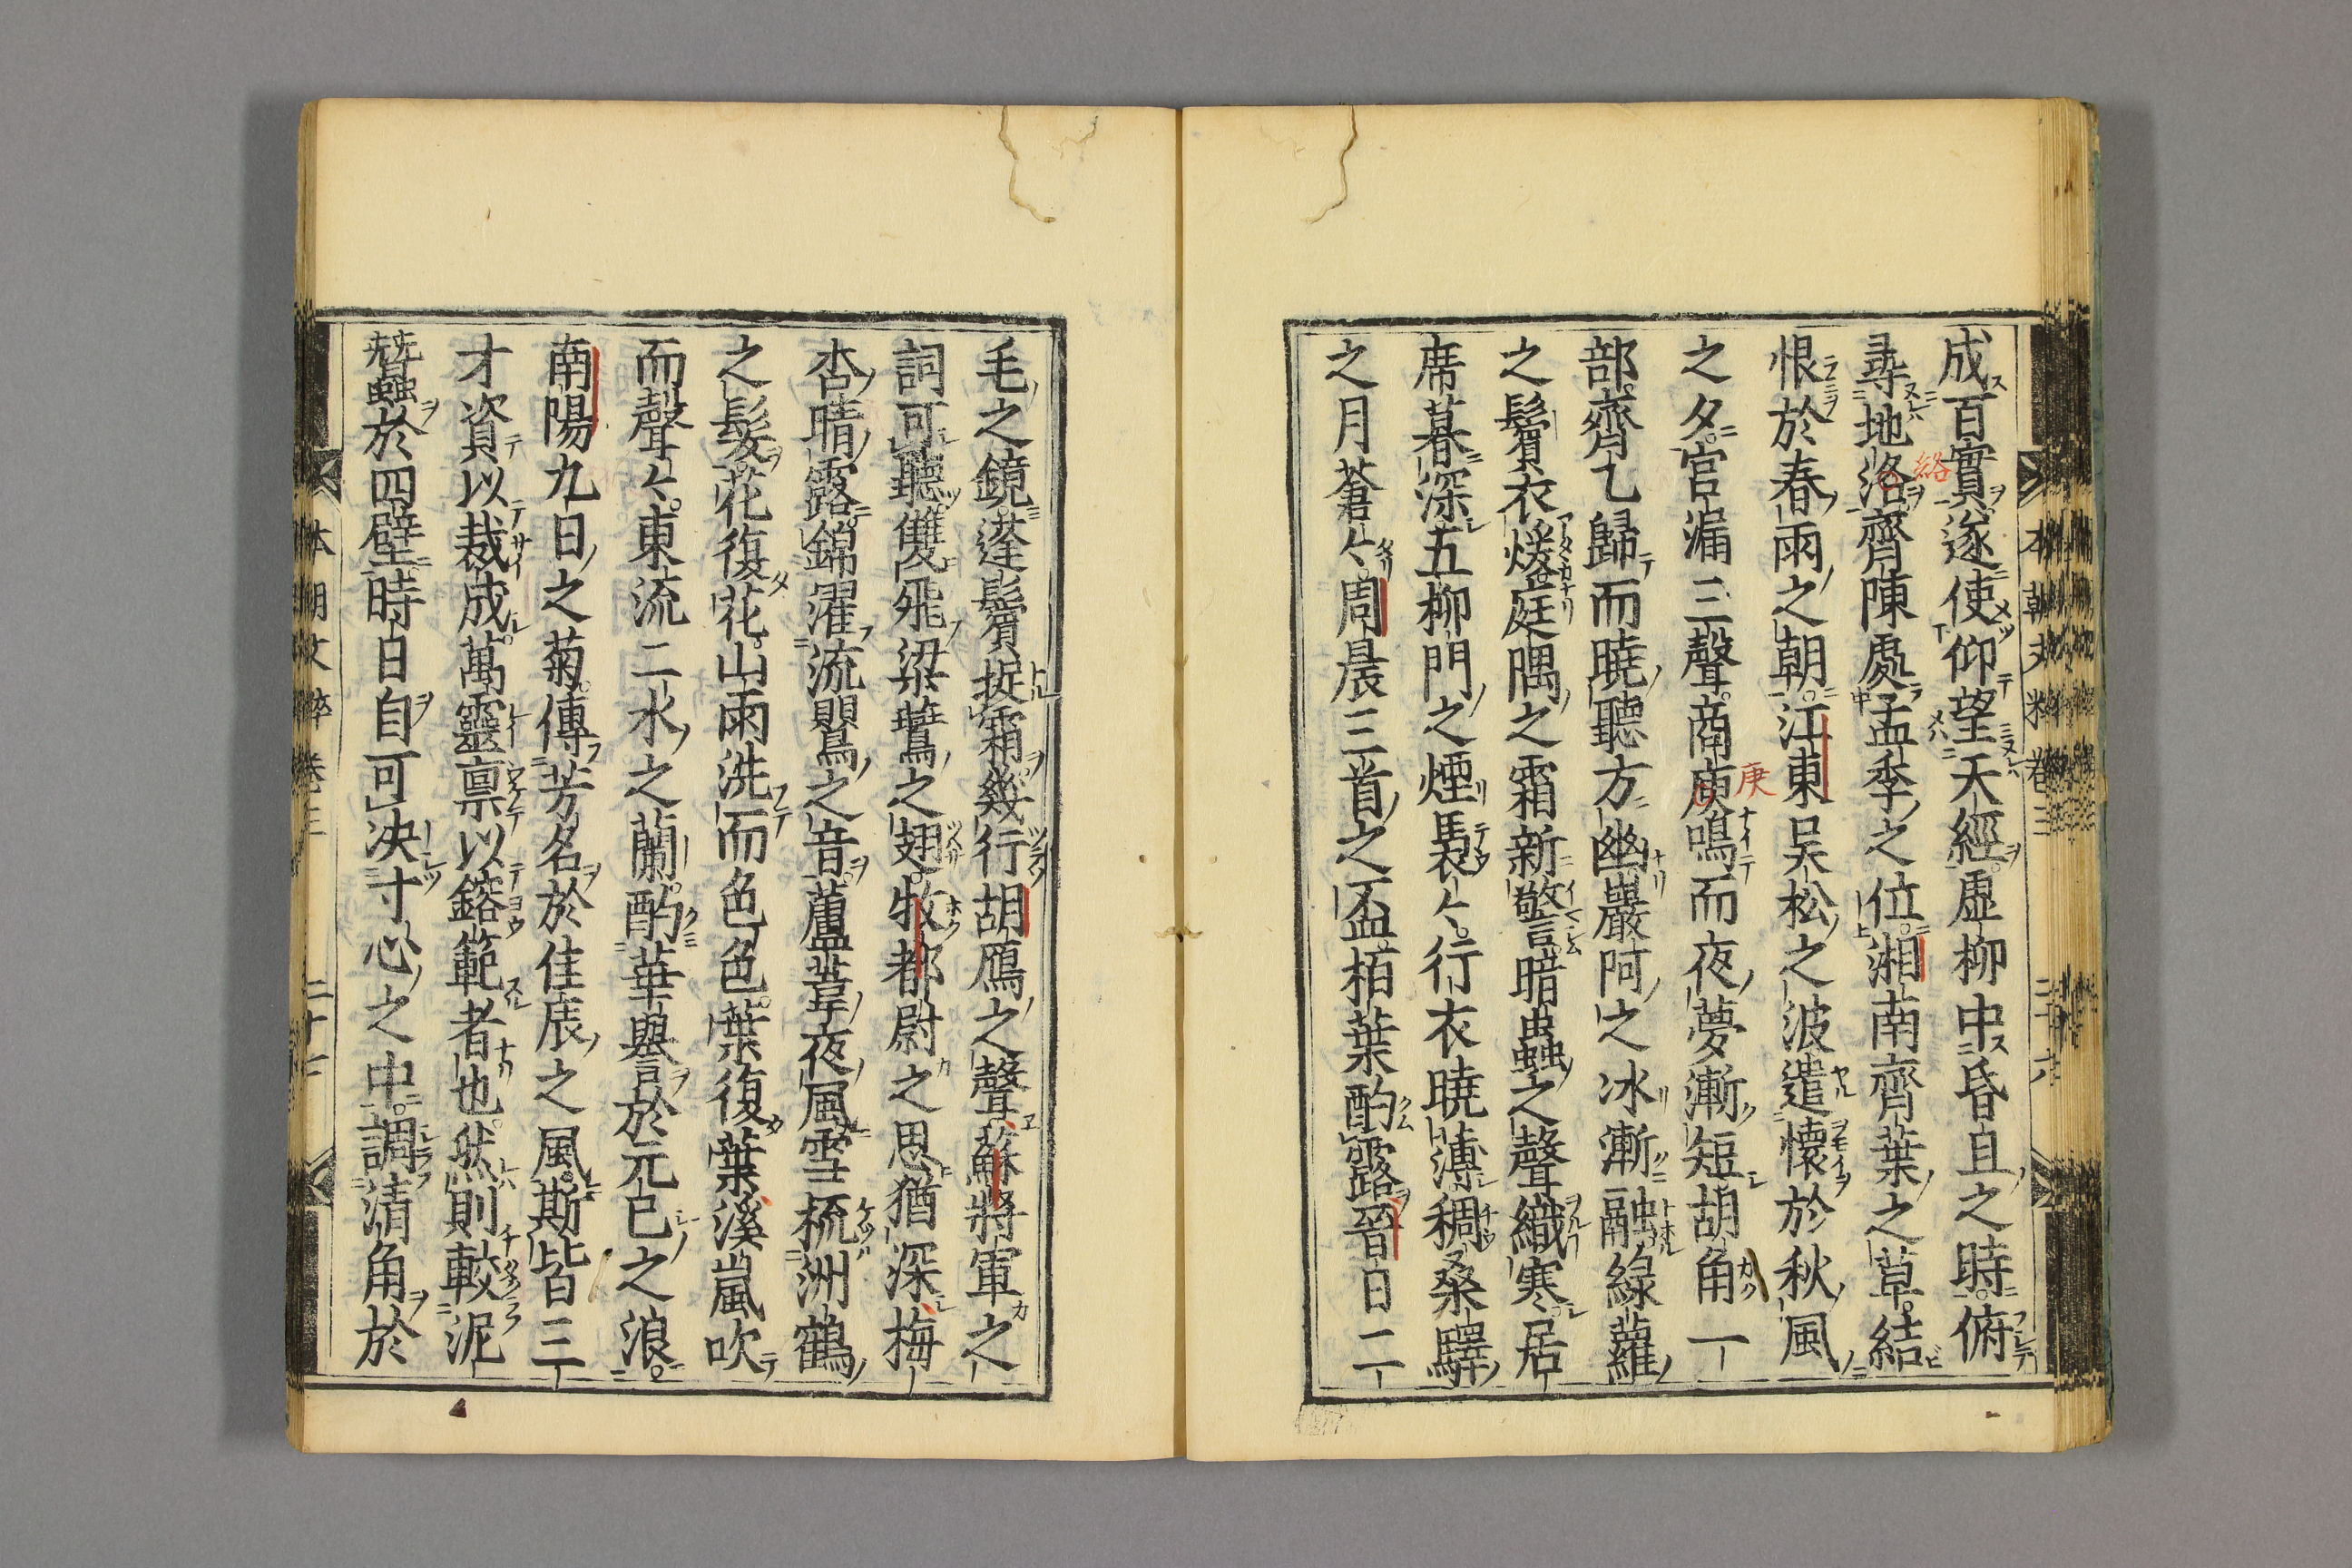 成百實遂使仰望天經虛柳中昏旦之時俯
尋地洛齊陳處孟季之位湘南齊葉之草結
絡
恨於春雨之朝江東吳松之波遣懷於秋風
之夕宮漏三聲商庾鳴而夜夢漸短胡角一
庚
部齊乙歸而曉聽方幽巖阿之冰漸融綠蘿
之鬢衣煖庭隅之霜新警暗蟲之聲織寒居
席暮深五柳門之煙裊〻行衣曉薄稠桑驛
之月蒼〻周晨三首之盃栢葉酌露晉日二
毛之鏡蓬鬢挻霜幾行胡鴈之聲蘇將軍之
詞可聽雙飛梁鷰之翅牧都尉之思猶深梅
杏晴露錦濯流鸎之音蘆葦夜風雪梳洲鶴
之髮花復花山雨洗而色色葉復葉溪嵐吹
而聲〻東流二水之蘭酌華譽於元巳之浪
南陽九日之菊傳芳名於佳辰之風斯皆三
才資以裁成萬靈禀以鎔範者也然則較泥
蠶於四壁時日自可决寸心之中調清角於
本朝文粹卷三
二十六
本朝文粹 卷三
二十七